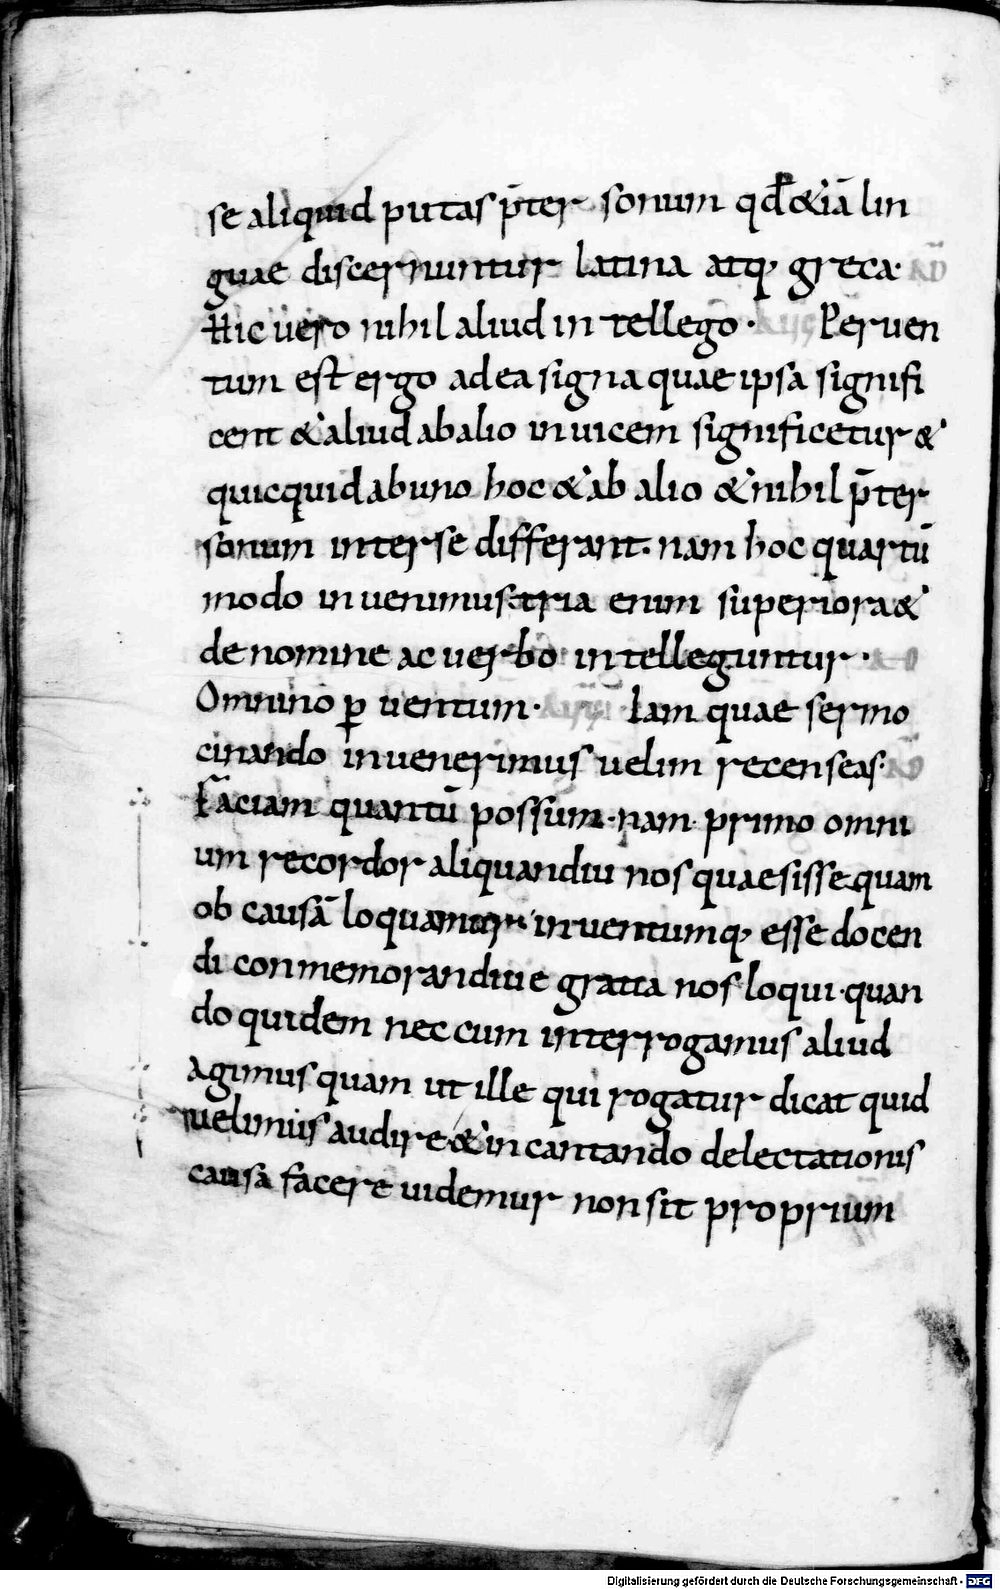 se aliquid putas p̄ter sonum qđ &iā lin
guae discernuntur latina atq; greca·
Hic uero nihil aliud in tellego · Peruen
tum est ergo ad ea signa quae ipsa signifi
cent & aliud ab alio inuicem significetur &
quicquid ab uno hoc & ab alio & nihil p̄ter
sonum inter se differant· nam hoc quartū
modo inuenimus· tria enim superiora &
de nomine ac uerbo in telleguntur ·
Omnino ꝑ uentum· Iam quae sermo
cinando inuenerimus uelim recenseas·
Faciam quantū possum· nam primo omni
um recordor aliquandiu nos quaesisse quam
ob causā loquamur· inuentumq; esse docen
di conmemorandiue gratia nos loqui· quan
do quidem nec cum interrogamus aliud
agimus quam ut ille qui rogatur dicat quid
uelimus audire & in cantando delectationis
causa facere uidemur non sit proprium
Digitalisierung gefördert durch die Deutsche Forschungsgemeinschaft - DFG